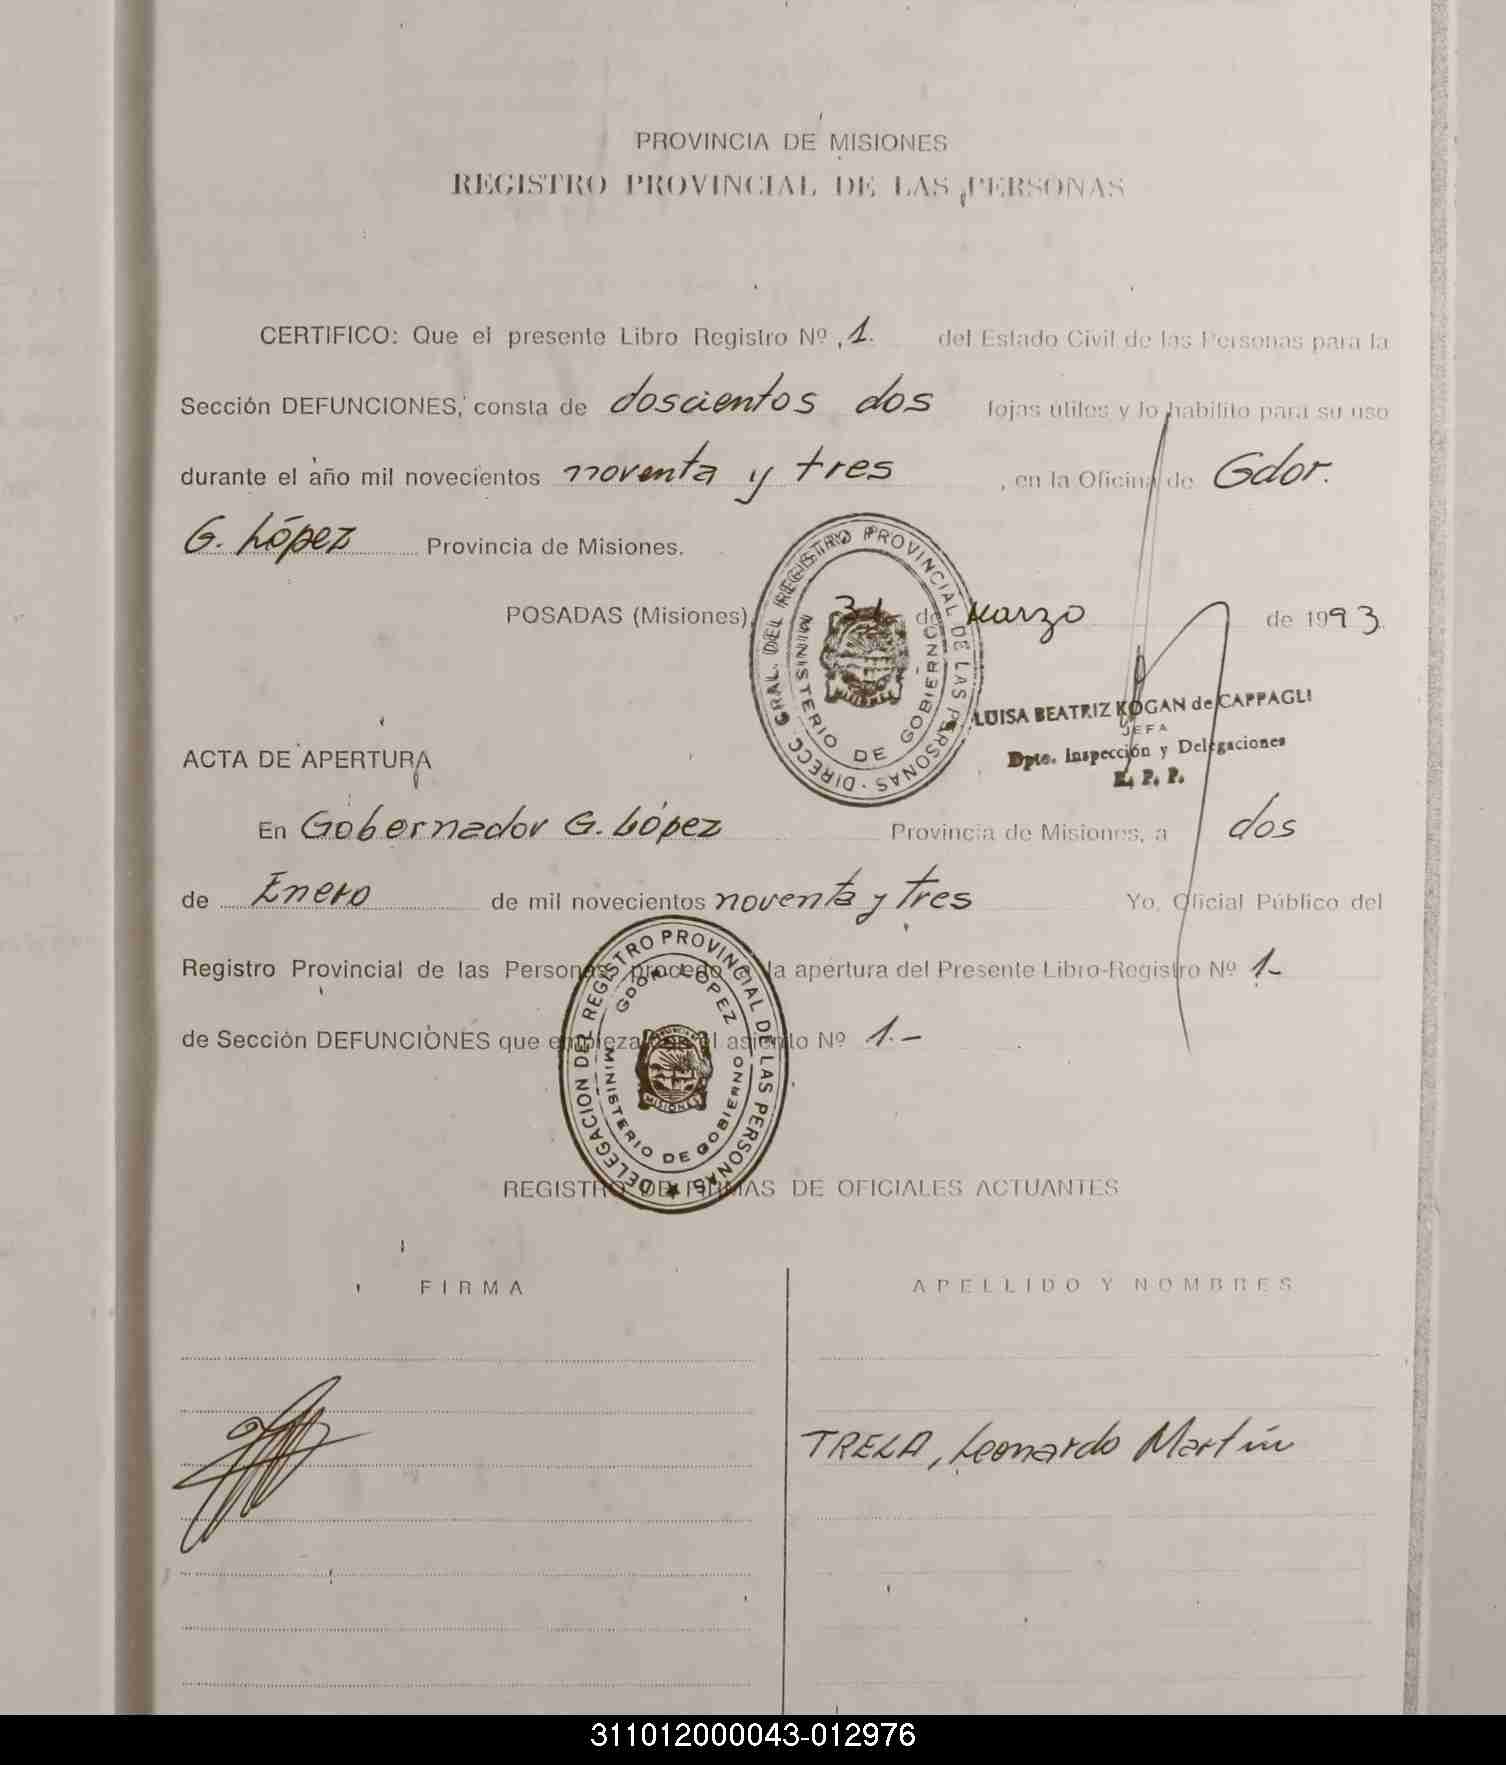 PROVINCIA DE MISIONES
REGISTRO PROVINCIAL DE LAS PERSONAS
CERTIFICO: Que el presente Libro Registro Nº 1. del Estado Civil de las Personas para la
Sección DEFUNCIONES, consta de doscientos dos fojas útiles y lo habilito para su uso
durante el año mil novecientos noventa y tres, en la Oficina de Gdor.
G. López Provincia de Misiones.
POSADAS (Misiones), 31 de Marzo de 1993.
DIRECC. GRAL. DEL REGISTRO PROVINCIAL DE LAS PERSONAS
MINISTERIO DE GOBIERNO
LUISA BEATRIZ KOGAN de CAPPAGLI
JEFA
Dpto. Inspección y Delegaciones
R. P. P.
ACTA DE APERTURA
En Gobernador G. López Provincia de Misiones, a dos
de Enero de mil novecientos noventa y tres Yo, Oficial Público del
Registro Provincial de las Personas, procedo a la apertura del Presente Libro-Registro Nº 1-
de Sección DEFUNCIONES que empieza con el asiento Nº 1.-
DELEGACION DEL REGISTRO PROVINCIAL DE LAS PERSONAS
GDOR. LOPEZ
MISIONES
MINISTERIO DE GOBIERNO
REGISTRO DE FIRMAS DE OFICIALES ACTUANTES
FIRMA APELLIDO Y NOMBRES
TRELA, Leonardo Martín
311012000043-012976